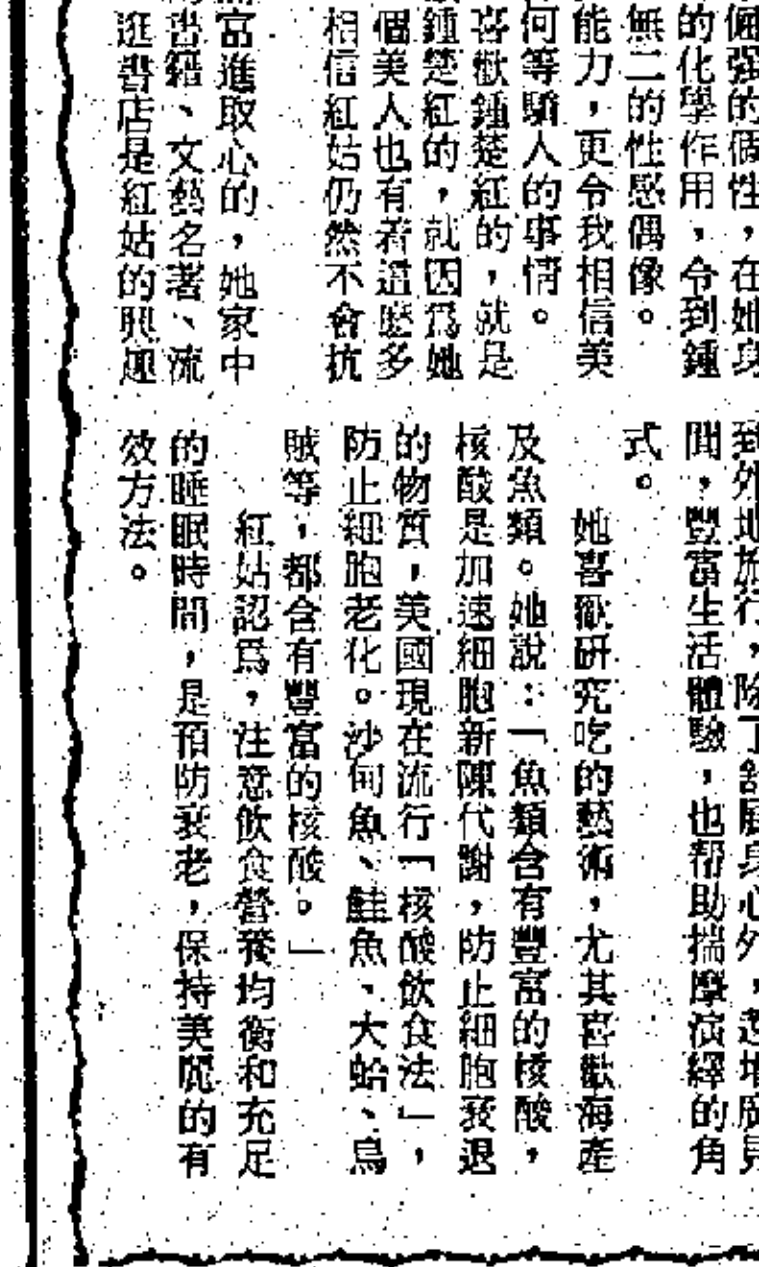 倔强的個性，在她身
的化學作用，令到鍾
無二的性感偶像。
能力，更令我相信美
何等驕人的事情。
喜歡鍾楚紅的，就是
鍾楚紅的，就因爲她
個美人也有着這麽多
相信紅姑仍然不會抗
富進取心的，她家中
書籍、文藝名著、流
逛書店是紅姑的興趣
到外地旅行，除了舒展身心外，還增廣見
聞，豐富生活體驗，也帮助揣摩演繹的角
式。
她喜歡研究吃的藝術，尤其喜歡海產
及魚類。她說：「魚類含有豐富的核酸，
核酸是加速細胞新陳代謝，防止細胞衰退
的物質，美國現在流行「核酸飲食法」，
防止細胞老化。沙甸魚、鮭魚、大蛤、烏
賊等，都含有豐富的核酸。」
紅姑認爲，注意飲食營養均衡和充足
的睡眠時間，是預防衰老，保持美麗的有
效方法。